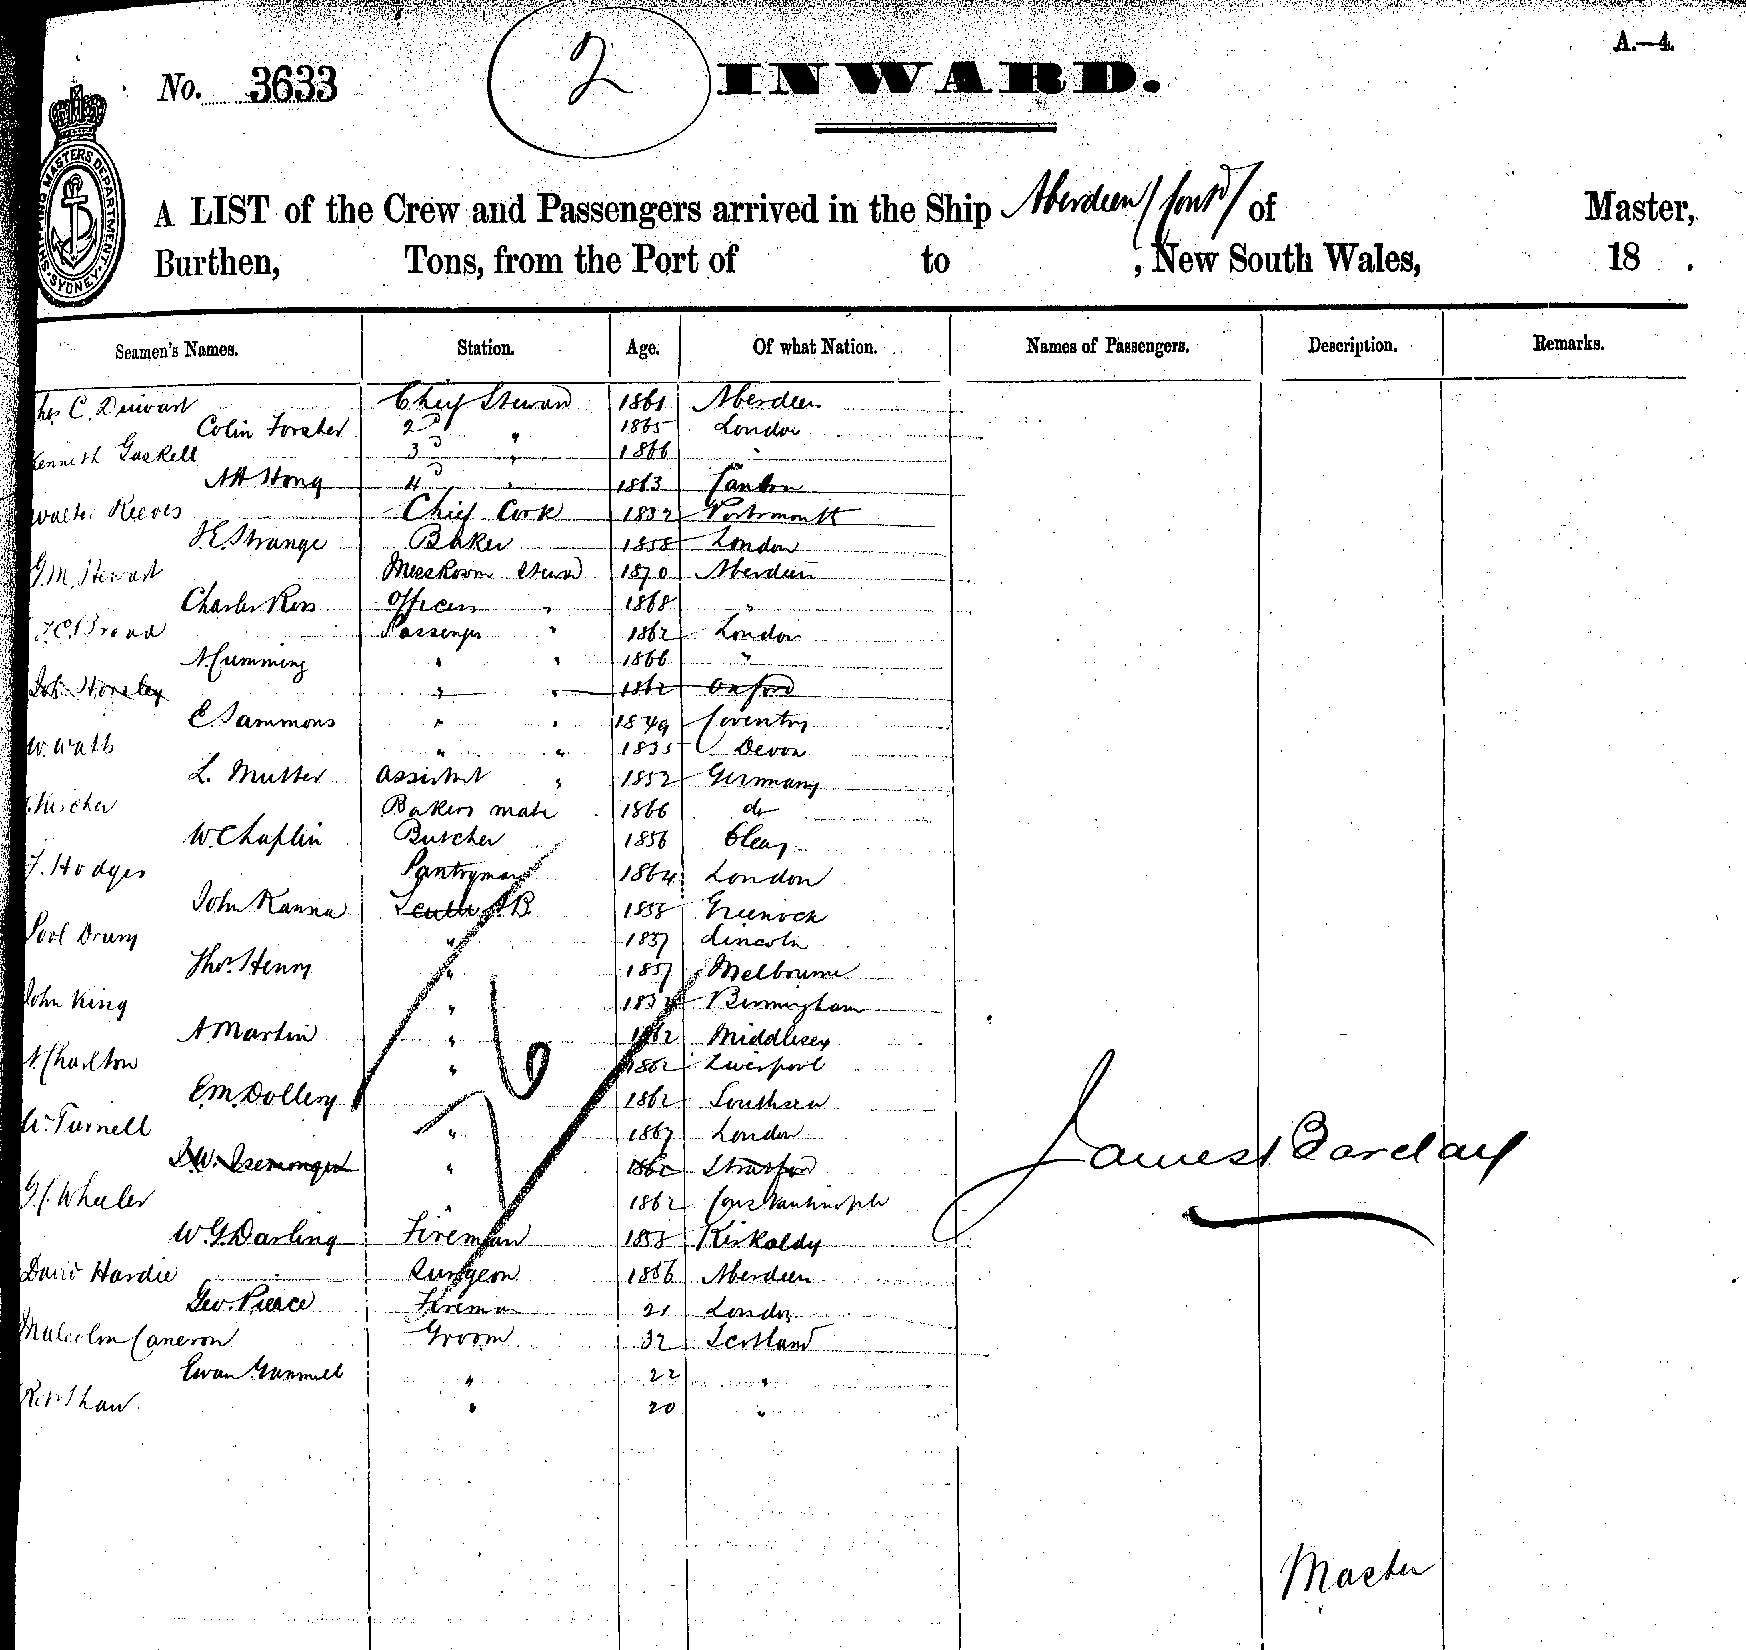 A.—4.
No. 3633 2 INWARD.
A LIST of the Crew and Passengers arrived in the Ship Aberdeen (contd) of Master,
Burthen, Tons, from the Port of to , New South Wales, 18 .
Seamen's Names. Station. Age. Of what Nation. Names of Passengers. Description. Remarks.
C. Chief Steward 1861 Aberdeen
Colin 2d " 1865 London
Kenneth Gaskell 3d " 1866 "
Ah Hong 4 " 1863 Canton
Walter Reeves Chief Cook 1832 Portsmouth
Strange Baker 1858 London
G.M. Stewart Messroom Stewd 1870 Aberdeen
Charles Ross Officers " 1868 "
Broad Passengr " 1862 London
A Cumming " " 1866 "
Joh Horsley " " 1862 Oxford
E Sammons " " 1849 Coventry
W. Watts " " 1835 Devon
L. Mutter Assistant " 1852 Germany
Kircher Bakers mate 1866 do
W Chaplin Butcher 1856
F. Hodges Pantryman 1864 London
John Kanna 1858 Greenock
Drury " 1857 Lincoln
Thos. Henry " 1857 Melbourne
John King " Birmingham
A Martin " 1862 Middlesex
A Charlton " 1862 Liverpool
E.M. Dollery 1862 Southsea
Turnell " 1867 London
" Stratford
G C Wheeler " 1862 Constantinople
W. G. Darling Fireman 1858 Kirkaldy
David Hardie Surgeon 1866 Aberdeen
Geo. Pierce Fireman 21 London
Malcolm Cameron Groom 32 Scotland
Ewan Gunmell " 22 "
Shaw " 20 "
James Barclay
Master